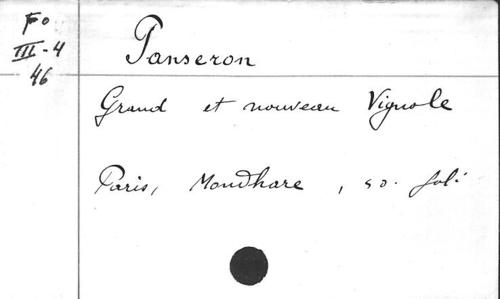 Fo
III-4
46
Panseron
Grand et nouveau Vignole
Paris, Mondhare, so. fol: